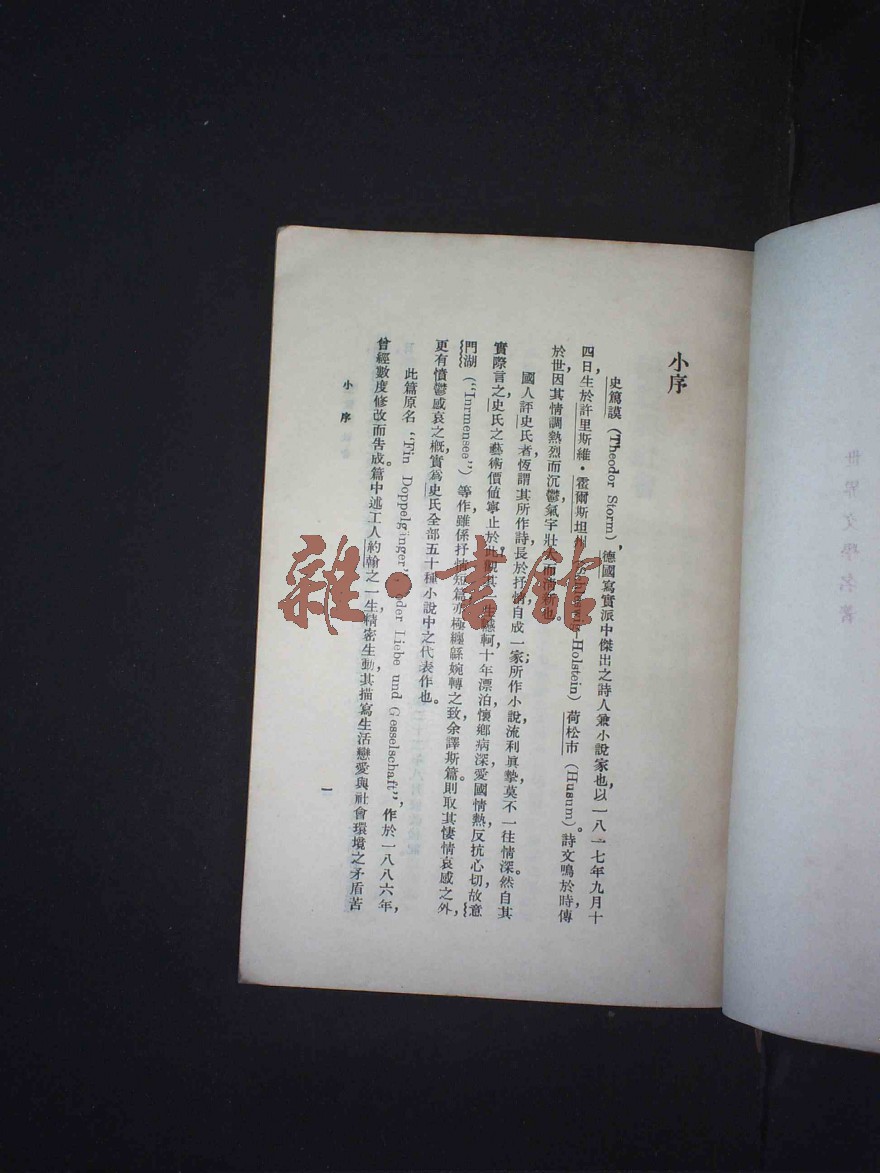 小序
史篤謨（Theodor Storm），德國寫實派中傑出之詩人兼小說家也，以一八一七年九月十
四日生於許里斯維·霍爾斯坦州（Schleswig-Holstein）荷松市（Husum）。詩文鳴於時傳
於世因其情調熱烈而沉鬱氣宇壯大而清新也。
國人評史氏者恆謂其所作詩長於抒情自成一家；所作小說流利眞摯莫不一往情深。然自其
實際言之，史氏之藝術價值寧止於此觀其一生轗軻十年漂泊懷鄉病深愛國情熱反抗心切故意
門湖（"Inrmensee"）等作雖係抒情短篇亦極纏緜婉轉之致余譯斯篇則取其悽情哀感之外，
更有憤鬱感哀之概，實爲史氏全部五十種小說中之代表作也。
此篇原名 "Ein Doppelgänger" oder Liebe und Gesselschaft"，作於一八八六年，
曾經數度修改而告成篇中述工人約翰之一生精密生動其描寫生活戀愛與社會環境之矛盾苦
小序
一
世界文學名著
雜·書館